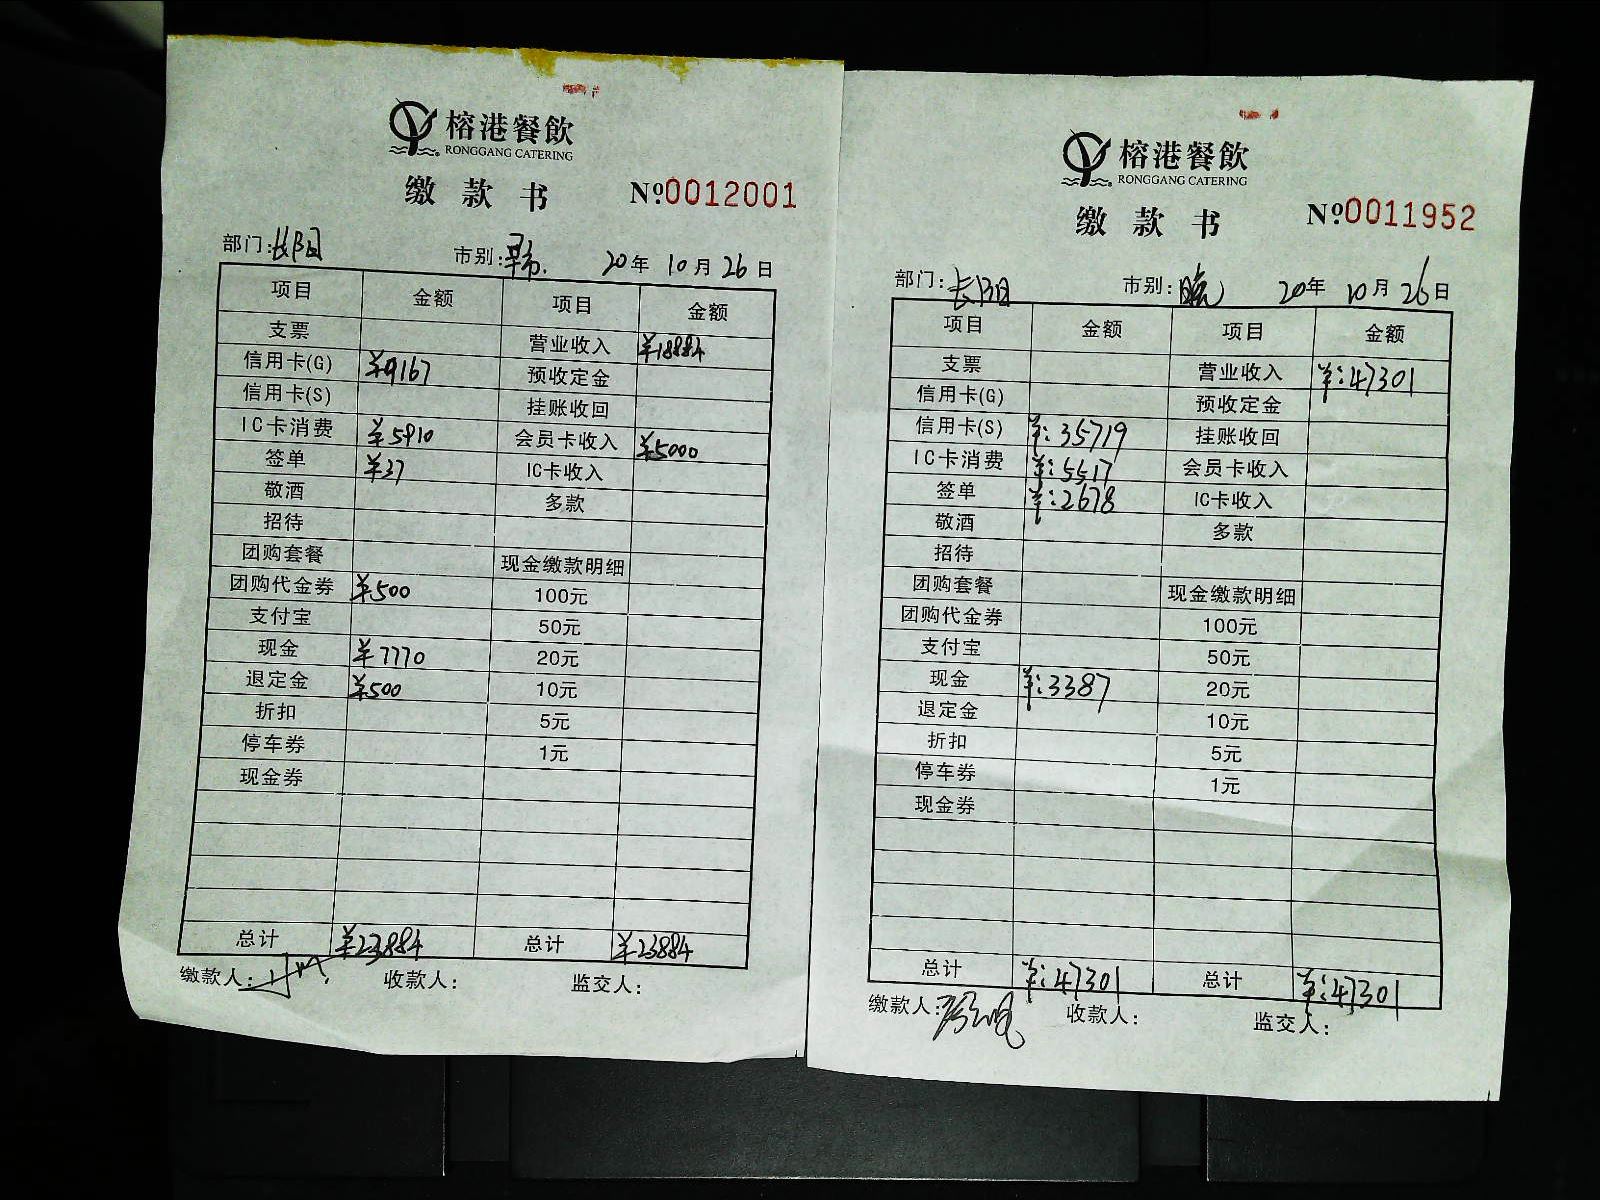 榕港餐飲
RONGGANG CATERING
缴款书 №0012001
部门:长阳 市别:早市. 20年10月26日
项目 金额 项目 金额
支票 营业收入 ¥18884
信用卡(G) ¥9167 预收定金
信用卡(S) 挂账收回
IC卡消费 ¥5910 会员卡收入 ¥5000
签单 ¥37 IC卡收入
敬酒 多款
招待
团购套餐 现金缴款明细
团购代金券 ¥500 100元
支付宝 50元
现金 ¥7770 20元
退定金 ¥500 10元
折扣 5元
停车券 1元
现金券
总计 ¥23884 总计 ¥23884
缴款人: 收款人: 监交人:
榕港餐飲
RONGGANG CATERING
缴款书 №0011952
部门:长阳 市别:晚 20年10月26日
项目 金额 项目 金额
支票 营业收入 ¥:47301
信用卡(G) 预收定金
信用卡(S) ¥:35719 挂账收回
IC卡消费 ¥:5517 会员卡收入
签单 ¥:2678 IC卡收入
敬酒 多款
招待
团购套餐 现金缴款明细
团购代金券 100元
支付宝 50元
现金 ¥:3387 20元
退定金 10元
折扣 5元
停车券 1元
现金券
总计 ¥:47301 总计 ¥:47301
缴款人: 收款人: 监交人: